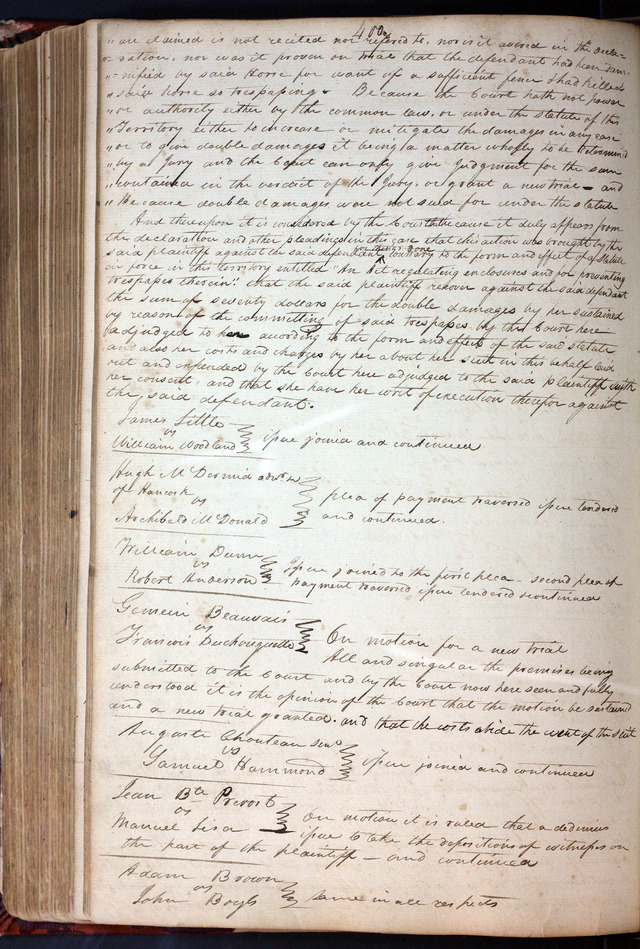 400
" are claimed is not recited nor refered to, nor is it averred in the decla=
" ration, nor was it proven on trial that the defendant had been dam=
" nified by said Horse for want of a sufficient fence & had killed
" said horse so trespassing & Because the Court hath not power
" or authority either by the common law, or under the statute of this
" Territory either to increase or mitigate the damages in any case
" or to give double damages it being a matter wholly to be determind
" by a Jury and the Court can only give Judgment for the sum
" contained in the verdict of the Jury, or grant a new trial - and
" Because double damages were not sued for under the statute
And thereupon it is considered by the Court because it duly appears from
the declaration and other pleadings in this case that this action was brought by the
said plaintiff against the said defendant for things done contrary to the form and effect of a statute
in force in this territory entitled "An Act regulating enclosures and for preventing
trespasses therein" that the said plaintiff recover against the said defendant
the sum of seventy dollars for the double damages by her sustained
by reason of the committing of said trespasses by the Court here
adjudged to her according to the form and effect of the said statute
and also her costs and charges by her about her suit in this behalf laid
out and expended by the Court here adjudged to the said plaintiff with
her consent, and that she have her writ of execution therefor against
the said defendant.
James Little
vs
William Woodland
issue joined and continued
Hugh McDermid
of Hancock
vs
Archibald McDonald
plea of payment traversed issue tendered
and continued.
William Dunn
vs
Robert Anderson
Issue joined to the first plea - second plea of
payment traversed issue tendered & continued
Gemein Beauvais
vs
Francois Duchouquette
On motion for a new trial
All and singular the premises being
submitted to the Court and by the Court now here seen and fully
understood it is the opinion of the Court that the motion be sustaind
and a new trial granted. and that the costs abide the event of the suit
Auguste Chouteau Senr
vs
Samuel Hammond
issue joined and continued
Jean Bte Provost
vs
Manuel Lisa
On motion it is ruled that a dedimus
issue to take the depositions of witnesses on
the part of the plaintiff - and continued
Adam Brown
vs
John Boyls
same in all respects